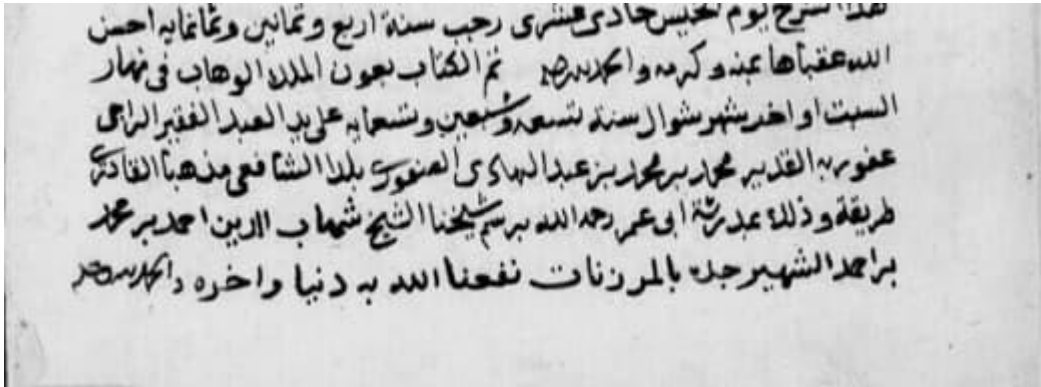 هذا الشرح يوم الخميس حادي عشرى رجب سنة اربع وثمانين وثمانمايه احسن
الله عقباها بمنه وكرمه والحمد لله وحده تم الكتاب بعون الملك الوهاب في نهار
السبت اواخر شهر شوال سنة تسعه وتسعين وتسعمايه على يد العبد الفقير الراجى
عفو ربه القدير محمد بن محمد بن عبد الهادى بلدا الشافعى مذهبا القادرى
طريقة وذلك بمدرسة ابى عمر رحمه الله برسم شيخنا الشيخ شهاب الدين احمد بن محمد
بن احمد الشهير جده نفعنا الله به دنيا واخره والحمد لله وحده